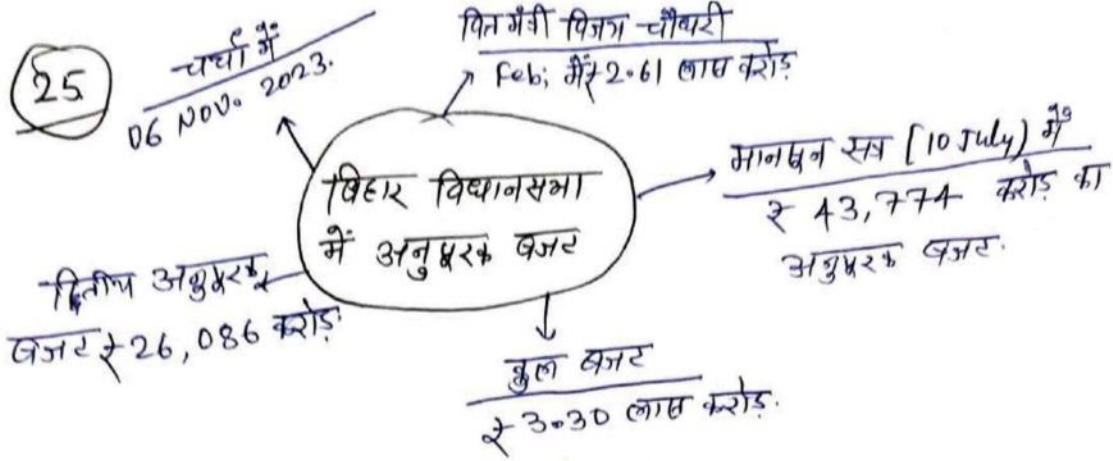 25
चर्चा में
06 NOV. 2023.
वित मंत्री विजय चौधरी
Feb; में ₹2.61 लाख करोड़
बिहार विधानसभा
में अनुपूरक बजट
मानसून सत्र [10 July) में
₹ 43,774 करोड़ का
अनुपूरक बजट.
द्वितीय अनुपूरक
बजट ₹26,086 करोड़.
कुल बजट
₹3.30 लाख करोड़.